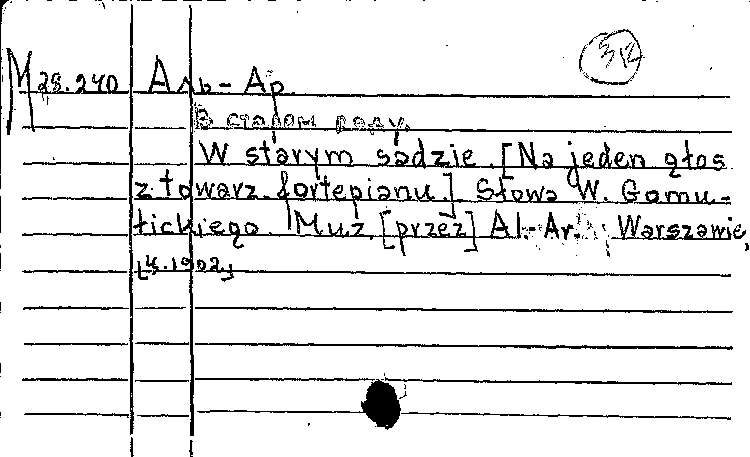 312
M 28.240 Аль-Ар
В старом саду.
W starym sadzie. [Na jeden głos
z towarz. fortepianu.] Słowa W. Gomu-
łickiego. Muz. [przez] Al.-Ar. Warszawie,
1902